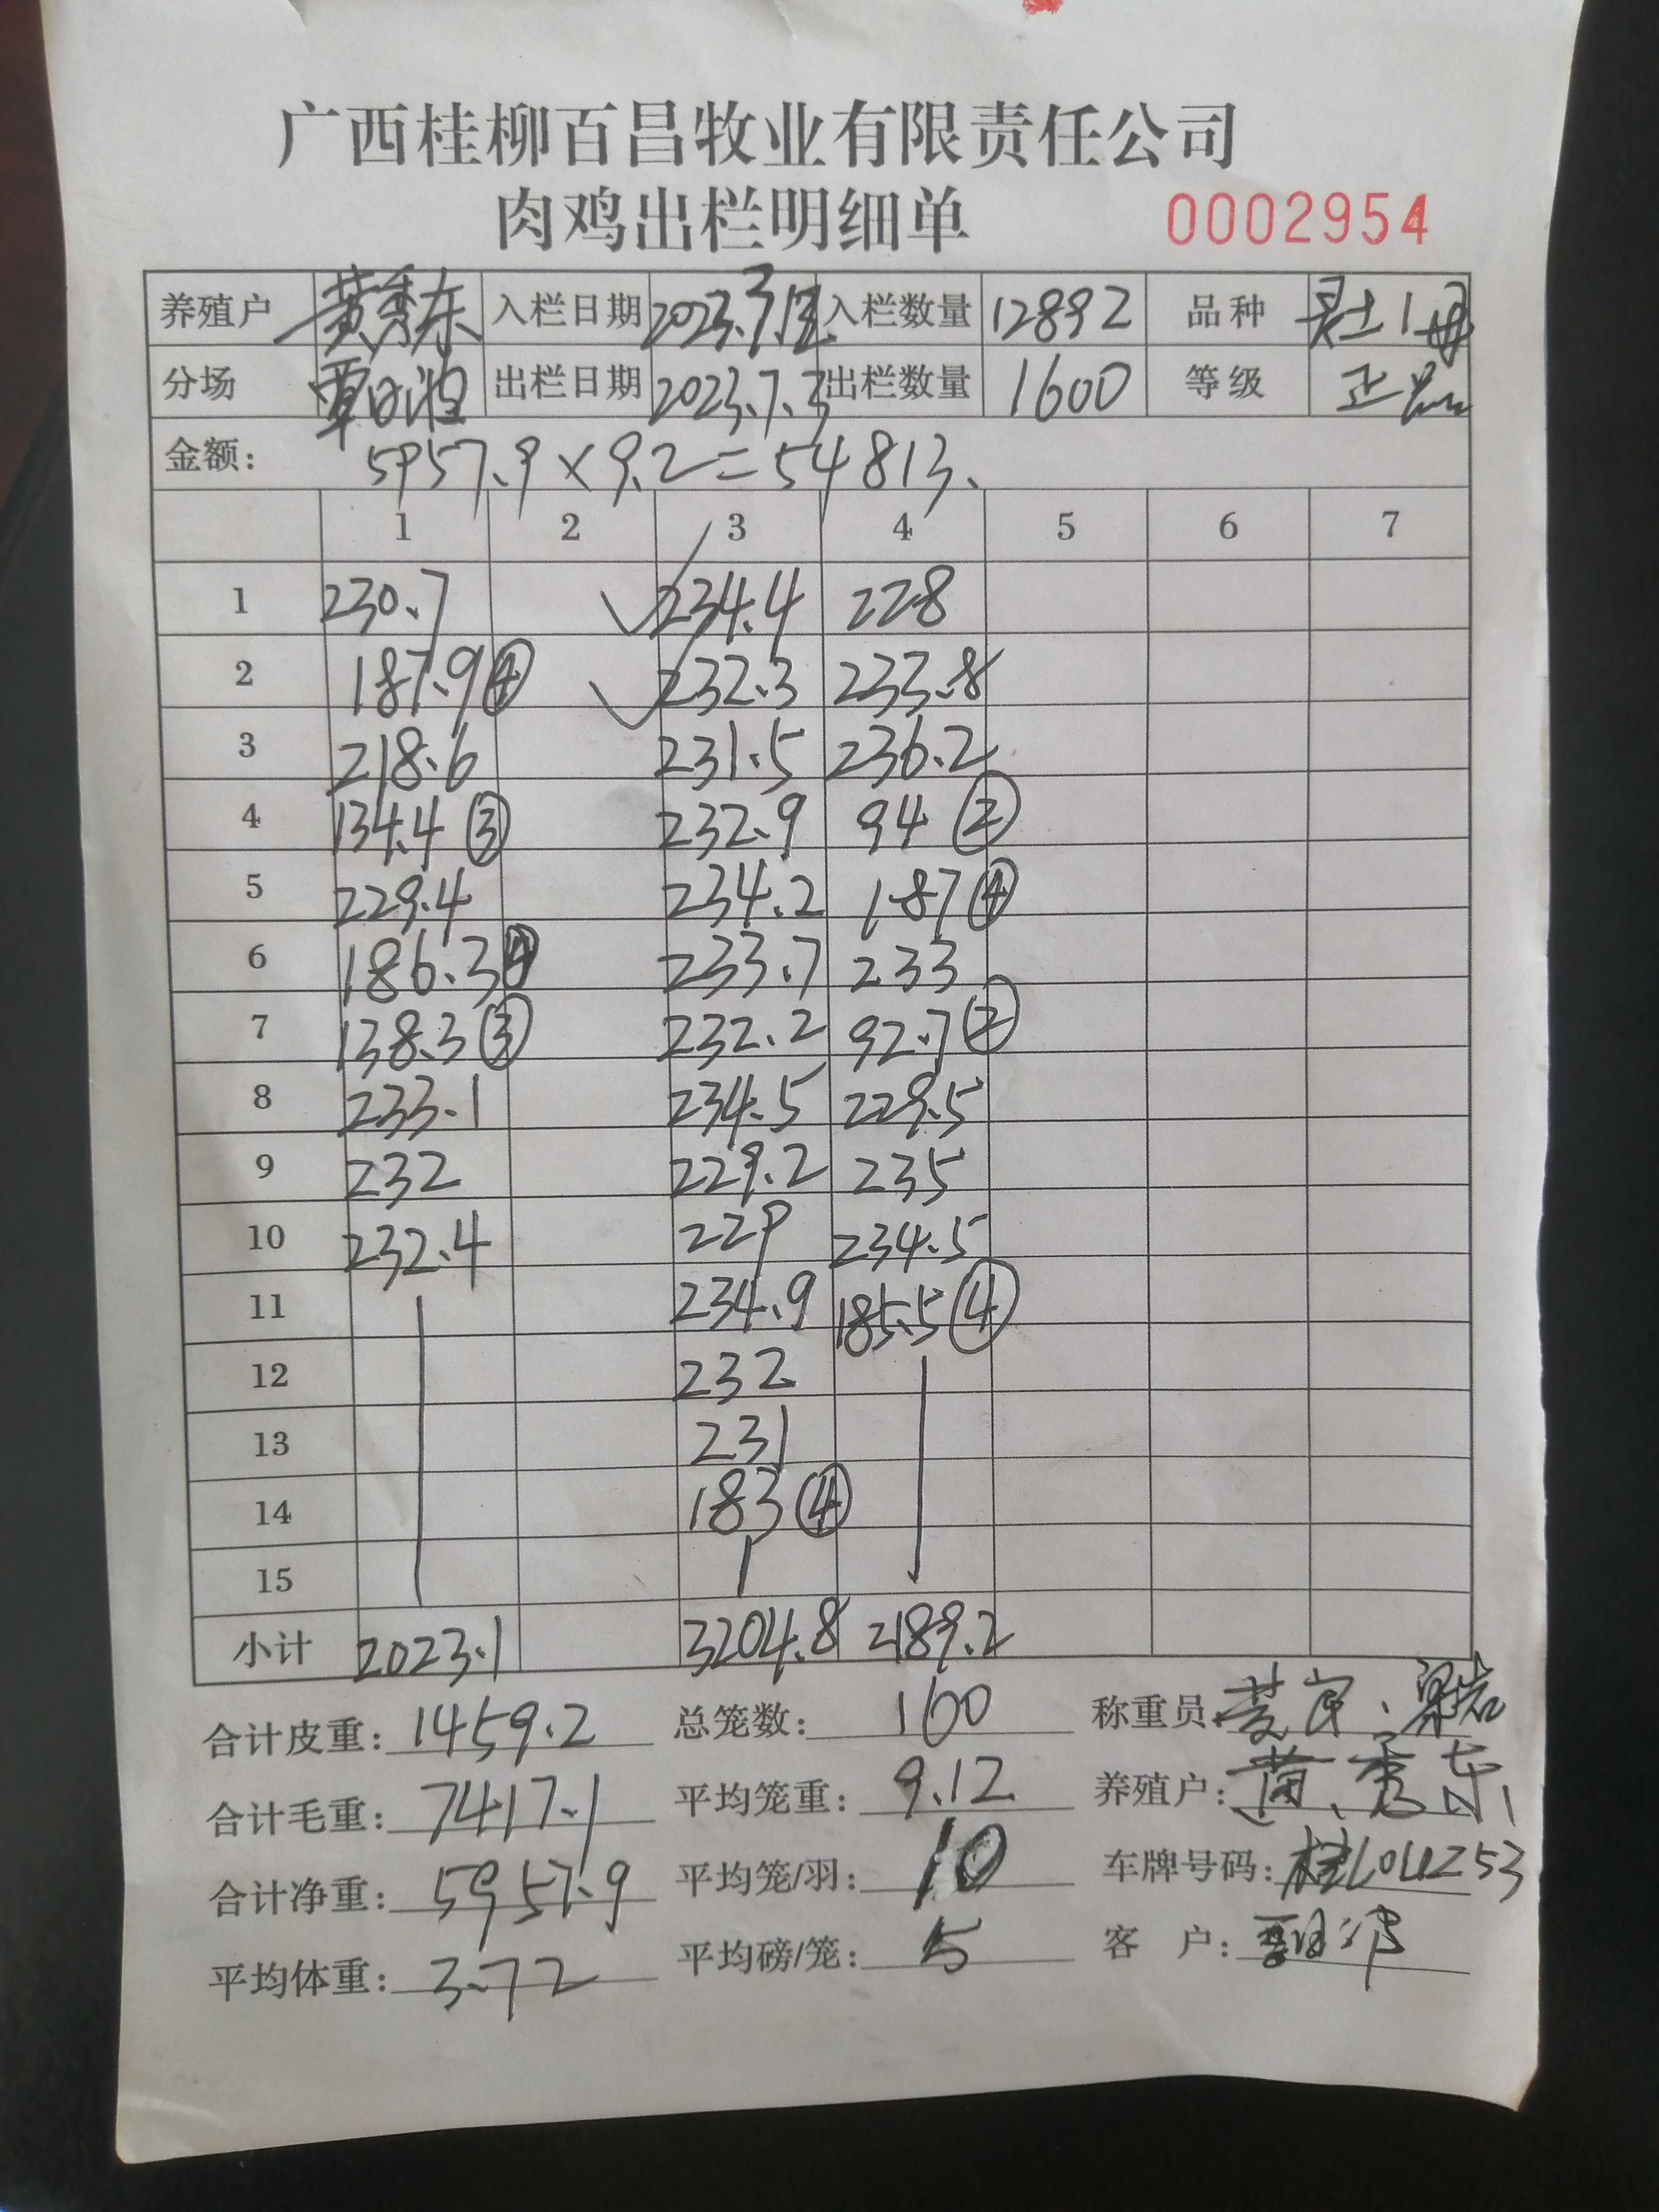 广西桂柳百昌牧业有限责任公司
肉鸡出栏明细单 0002954
养殖户 黄秀东 入栏日期 2023.3. 入栏数量 12892 品种 灵土1母
分场 覃日 出栏日期 2023.7.3 出栏数量 1600 等级 正
金额: 5957.9×9.2=54813.
1 2 3 4 5 6 7
1 230.7 234.4 228
2 187.9④ 232.3 233.8
3 218.6 231.5 236.2
4 134.4③ 232.9 94②
5 229.4 234.2 187④
6 186.3④ 233.7 233
7 138.3③ 232.2 92.7②
8 233.1 234.5 229.5
9 232 229.2 235
10 232.4 229 234.5
11 234.9 185.5④
12 232
13 231
14 183④
15
小计 2023.1 3204.8 2189.2
合计皮重: 1459.2 总笼数: 160 称重员:
合计毛重: 7417.1 平均笼重: 9.12 养殖户: 黄秀东
合计净重: 5957.9 平均笼/羽: 10 车牌号码:
平均体重: 3.72 平均磅/笼: 5 客 户: